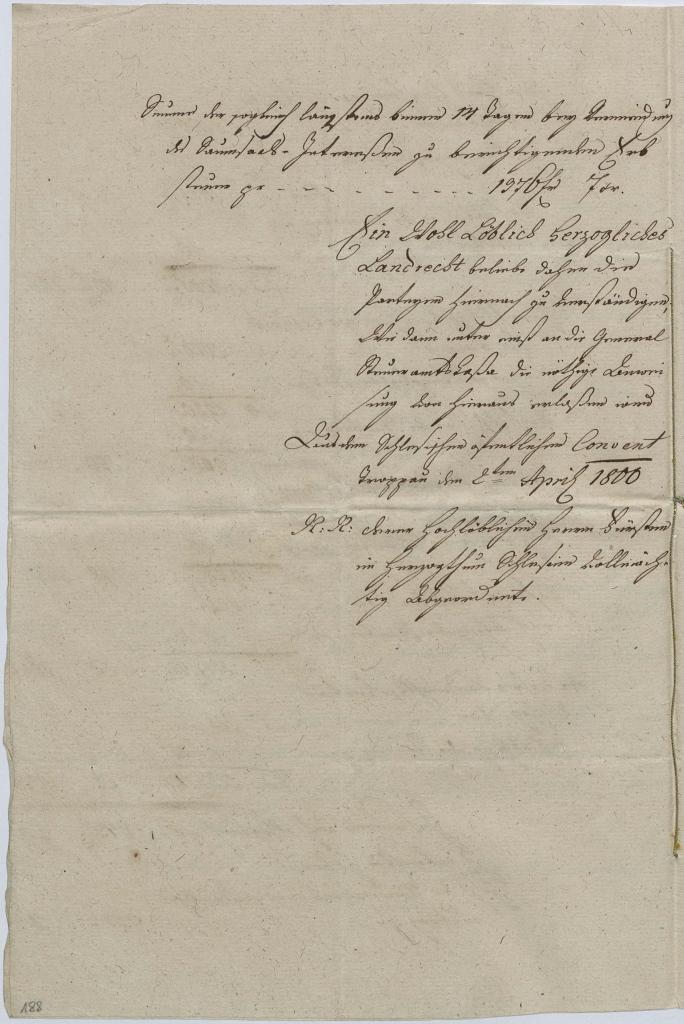 Summe der sogleich längstens binnen 14 Tagen bey Vermeidung
der Saumsaals-Interessen zu berichtigenden Erb
steuer pr - - - - - - - - - - 1976 fr 7 xr.
Ein Wohl Löblich Herzogliches
Landrecht beliebe daher die
Partheyen hiernach zu verständigen,
Wie dann unter einst an die General
Steueramts Kassa die nöthige Anwei
sung von hieraus erlassen wird
Aus dem Schlesischen öffentlichen Convent
Troppau den 2ten April 1800
N: N: deren Hochlöblichen Herren Fürsten
im Herzogthum Schlesien Vollmäch-
tig Abgeordnete.
188